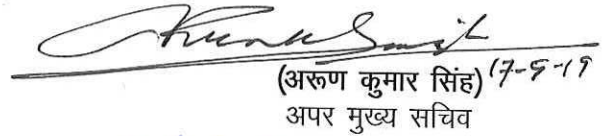 (अरूण कुमार सिंह) 17-9-19
अपर मुख्य सचिव